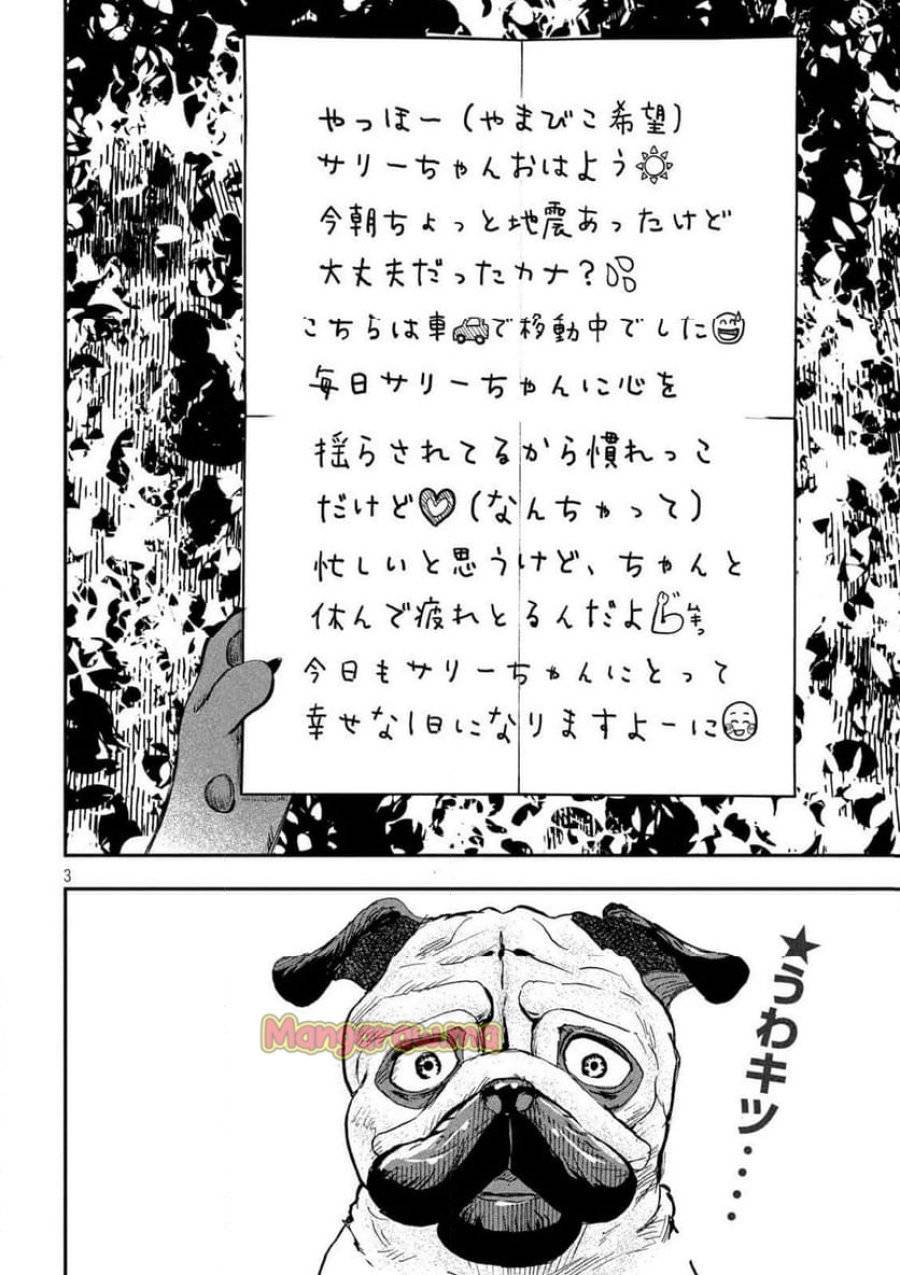 やっほー(やまびこ希望)
サリーちゃんおはよう☀
今朝ちょっと地震あったけど
大丈夫だったカナ?💦
こちらは車🚗で移動中でした😅
毎日サリーちゃんに心を
揺らされてるから慣れっこ
だけど♡(なんちゃって)
忙しいと思うけど、ちゃんと
休んで疲れとるんだよ💪ムキっ
今日もサリーちゃんにとって
幸せな1日になりますよーに😊
3
★うわキツ・・・・
Mangaraw.ma